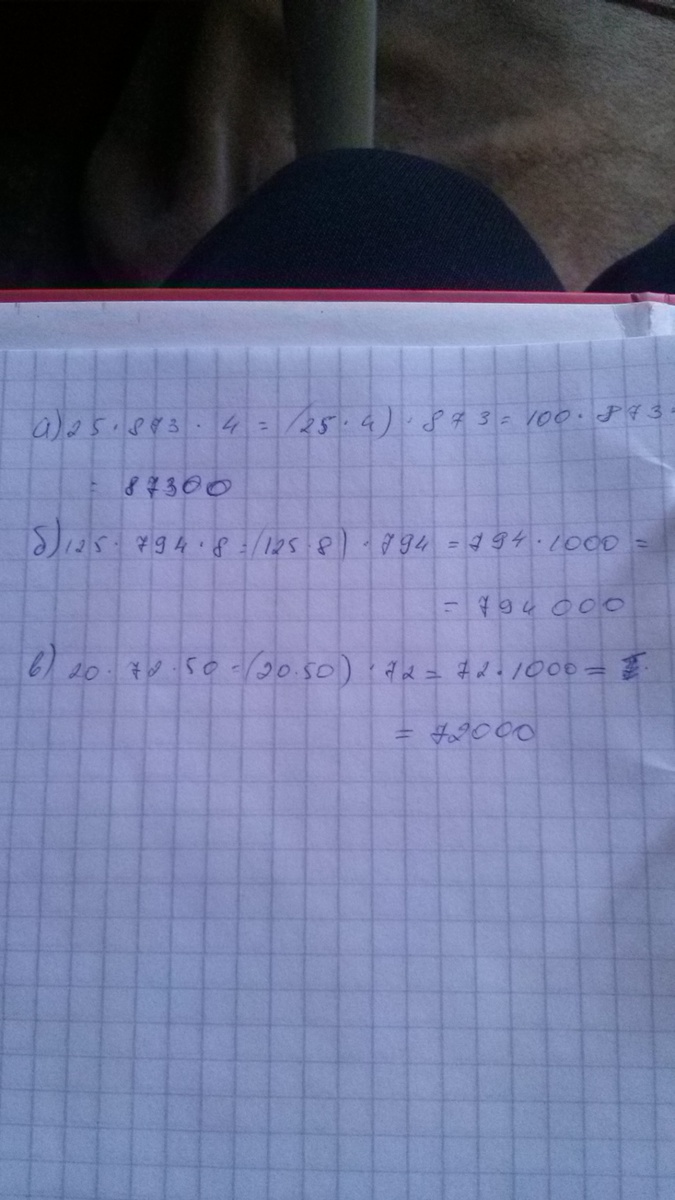 а) 25 · 873 · 4 = (25 · 4) · 873 = 100 · 873 =
= 87300
б) 125 · 794 · 8 = (125 · 8) · 794 = 794 · 1000 =
= 794 000
в) 20 · 72 · 50 = (20 · 50) · 72 = 72 · 1000 =
= 72000